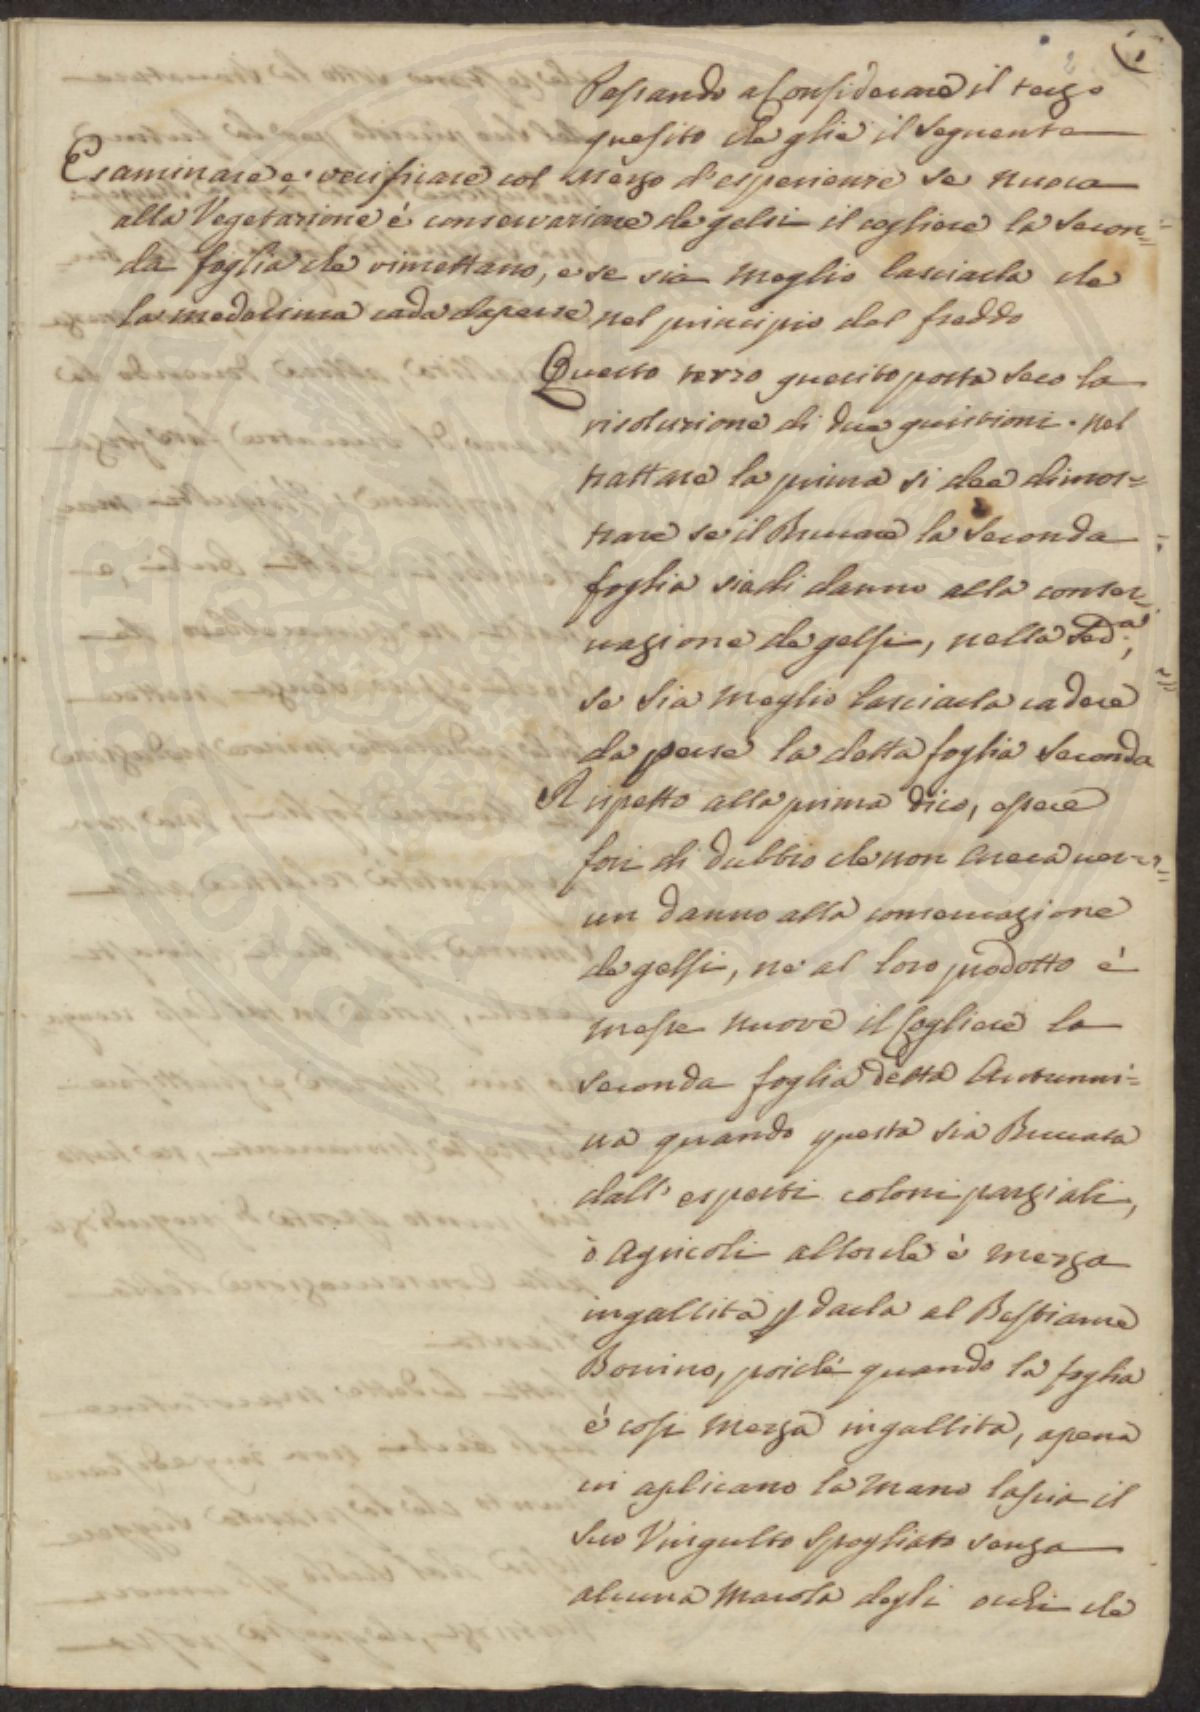 Passando a Considerare il terzo
quesito che gliè il Seguente
Esaminare e verificare col mezo d'esperienze se nuoca
alla Vegetazione è conservazione de gelsi il cogliere la secon=
da foglia che rimettano, e se sia meglio lasciarla che
la medesima cada daperse nel principio del freddo
Questo terzo quesito porta seco la
risoluzione di due quistioni. nel
trattare la prima si dee dimos=
trare se il Bruccare la Seconda
foglia sia di danno alla conser=
vazione de gelsi, nella Sed.a,
se sia meglio lasciarla cadere
da perse la detta foglia Seconda
Rispetto alla prima dico, essere
fori di dubbio che non Areca ver=
un danno alla conservazione
de gelsi, ne al loro prodotto è
messe nuove il Cogliere la
seconda foglia detta Autunni=
na quando questa sia Bruccata
dall' esperti coloni parziali,
ò Agricoli allorche è mezza
ingallita p darla al Bestiame
Bovino, poiche quando la foglia
è cosi mezza ingallita, apena
vi aplicano la mano lascia il
suo Virgulto Spogliato senza
alcuna macola degli ochi che